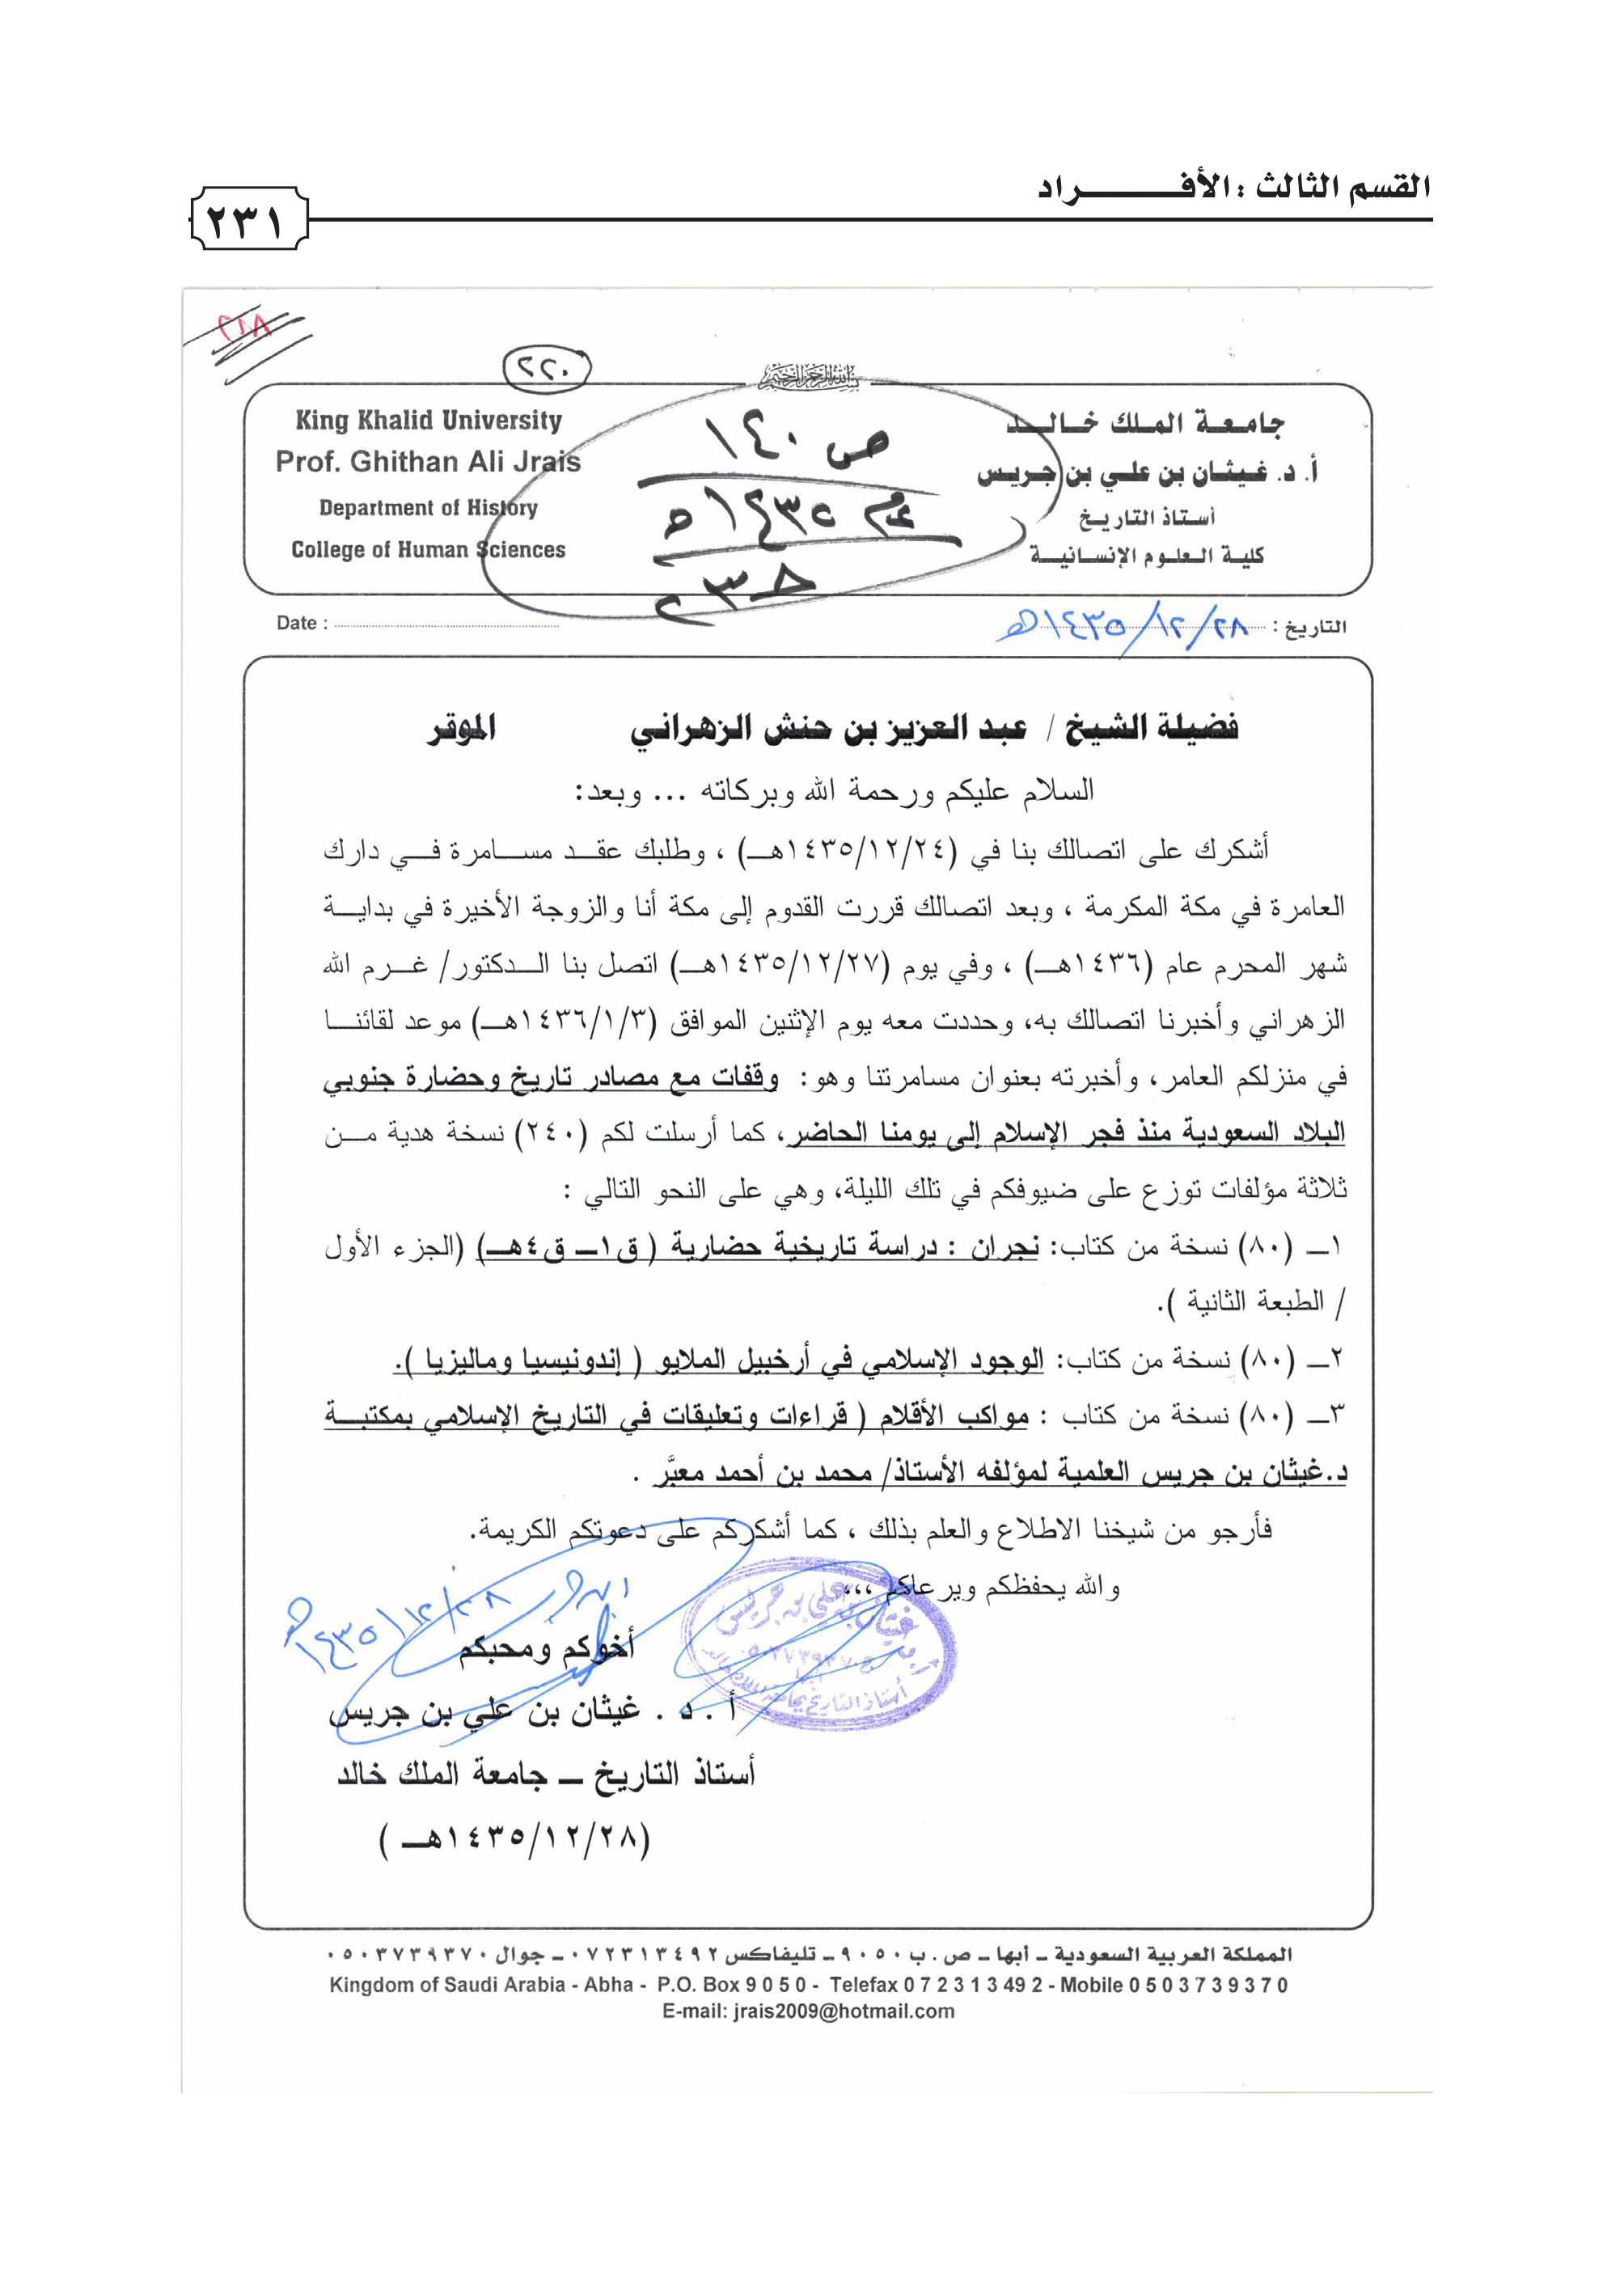 القسم الثالث : الأفـــــراد
٢٣١
٢١٨
٢٢٠
بسم الله الرحمن الرحيم
King Khalid University
Prof. Ghithan Ali Jrais
Department of History
College of Human Sciences
ص ١٤٠
١٤٣٥ هـ
جامـعـة المـلـك خـالـد
أ. د. غـيـثـان بن علـي بن جـريـس
أسـتـاذ التاريـخ
كليـة الـعـلـوم الإنـسـانـيـة
Date :
التاريخ : ١٤٣٥/١٢/٢٨هـ
فضيلة الشيخ / عبد العزيز بن حنش الزهراني الموقر
السلام عليكم ورحمة الله وبركاته ... وبعد:
أشكرك على اتصالك بنا في (١٤٣٥/١٢/٢٤هـ) ، وطلبك عقد مسامرة في دارك
العامرة في مكة المكرمة ، وبعد اتصالك قررت القدوم إلى مكة أنا والزوجة الأخيرة في بداية
شهر المحرم عام (١٤٣٦هـ) ، وفي يوم (١٤٣٥/١٢/٢٧هـ) اتصل بنا الدكتور/ غرم الله
الزهراني وأخبرنا اتصالك به، وحددت معه يوم الإثنين الموافق (١٤٣٦/١/٣هـ) موعد لقائنا
في منزلكم العامر، وأخبرته بعنوان مسامرتنا وهو: وقفات مع مصادر تاريخ وحضارة جنوبي
البلاد السعودية منذ فجر الإسلام إلى يومنا الحاضر، كما أرسلت لكم (٢٤٠) نسخة هدية من
ثلاثة مؤلفات توزع على ضيوفكم في تلك الليلة، وهي على النحو التالي :
١ـ (٨٠) نسخة من كتاب: نجران : دراسة تاريخية حضارية ( ق١ـ ق٤هـ) (الجزء الأول
/ الطبعة الثانية ).
٢ـ (٨٠) نسخة من كتاب: الوجود الإسلامي في أرخبيل الملايو ( إندونيسيا وماليزيا ).
٣ـ (٨٠) نسخة من كتاب : مواكب الأقلام ( قراءات وتعليقات في التاريخ الإسلامي بمكتبة
د.غيثان بن جريس العلمية لمؤلفه الأستاذ/ محمد بن أحمد معبَّر .
فأرجو من شيخنا الاطلاع والعلم بذلك ، كما أشكركم على دعوتكم الكريمة.
والله يحفظكم ويرعاكم ،،،
١٤٣٥/١٢/٢٨هـ
أخوكم ومحبكم
أ . د . غيثان بن علي بن جريس
أستاذ التاريخ ـ جامعة الملك خالد
(١٤٣٥/١٢/٢٨هـ )
المملكة العربية السعودية ـ أبها ـ ص . ب ٩٠٥٠ ـ تليفاكس ٠٧٢٣١٣٤٩٢ ـ جوال ٠٥٠٣٧٣٩٣٧٠
Kingdom of Saudi Arabia - Abha - P.O. Box 9 0 5 0 - Telefax 0 7 2 3 1 3 49 2 - Mobile 0 5 0 3 7 3 9 3 7 0
E-mail: jrais2009@hotmail.com